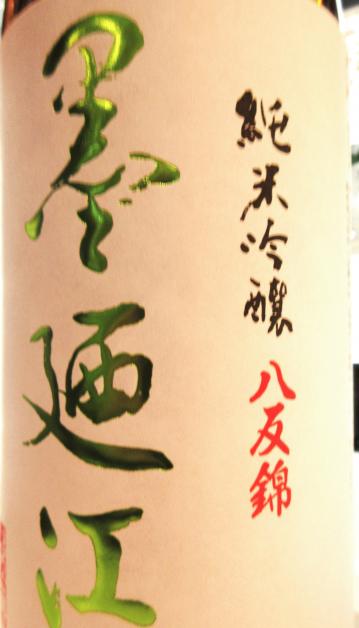 純米吟醸
八反錦
墨廼江